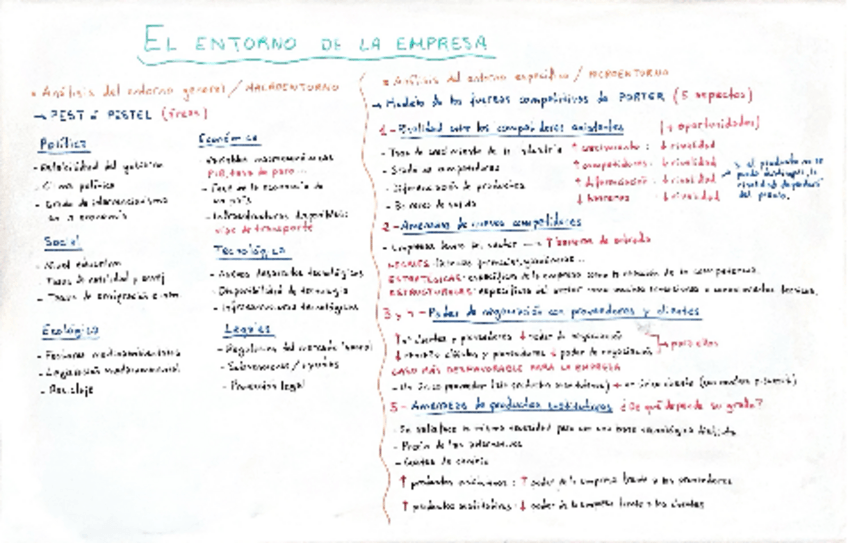 EL ENTORNO DE LA EMPRESA
• Análisis del entorno general / MACROENTORNO
→ PEST ó PESTEL (áreas)
Política
- Estabilidad del gobierno
- Clima político
- Grado de intervencionismo
en la economía
Económica
- Variables macroeconómicas
PIB, tasa de paro...
- Fase de la economía de
un país
- Infraestructuras disponibles:
vías de transporte
Social
- Nivel educativo
- Tasas de natalidad y envej.
- Tasas de emigración e inm.
Tecnológica
- Nuevos desarrollos tecnológicos
- Disponibilidad de tecnología
- Infraestructuras tecnológicas
Ecológica
- Factores medioambientales
- Legislación medioambiental
- Reciclaje
Legales
- Regulación del mercado laboral
- Subvenciones / ayudas
- Protección legal
• Análisis del entorno específico / MICROENTORNO
→ Modelo de las fuerzas competitivas de PORTER (5 aspectos)
1 - Rivalidad entre los competidores existentes (↑ oportunidades)
- Tasa de crecimiento de la industria ↑ crecimiento : ↓ rivalidad
- Grado de competidores ↑ competidores : rivalidad
- Diferenciación de productos ↑ diferenciación : ↓ rivalidad
- Barreras de salida ↓ barreras : ↓ rivalidad
→ si el producto no se
puede distinguir, la
rivalidad dependerá
del precio.
2 - Amenaza de nuevos competidores
- Empresa dentro del sector → ↑ barrera de entrada
LEGALES:
ESTRATÉGICAS: específicas de la empresa como la reacción de la competencia.
ESTRUCTURALES: específicas del sector como
3 y 4 - Poder de negociación con proveedores y clientes
↑ nº clientes y proveedores ↓ poder de negociación
↓ clientes y proveedores poder de negociación
→ para ellos
CASO MÁS DESFAVORABLE PARA LA EMPRESA
- Un único proveedor (sin productos sustitutivos) + un único cliente
5 - Amenaza de productos sustitutivos ¿De qué depende su grado?
- Se satisface la misma necesidad pero con una base tecnológica distinta
- Precio de las alternativas
- Costes de cambio
↑ productos sustitutivos : ↑ poder de la empresa frente a los proveedores
↑ productos sustitutivos : ↓ poder de la empresa frente a los clientes